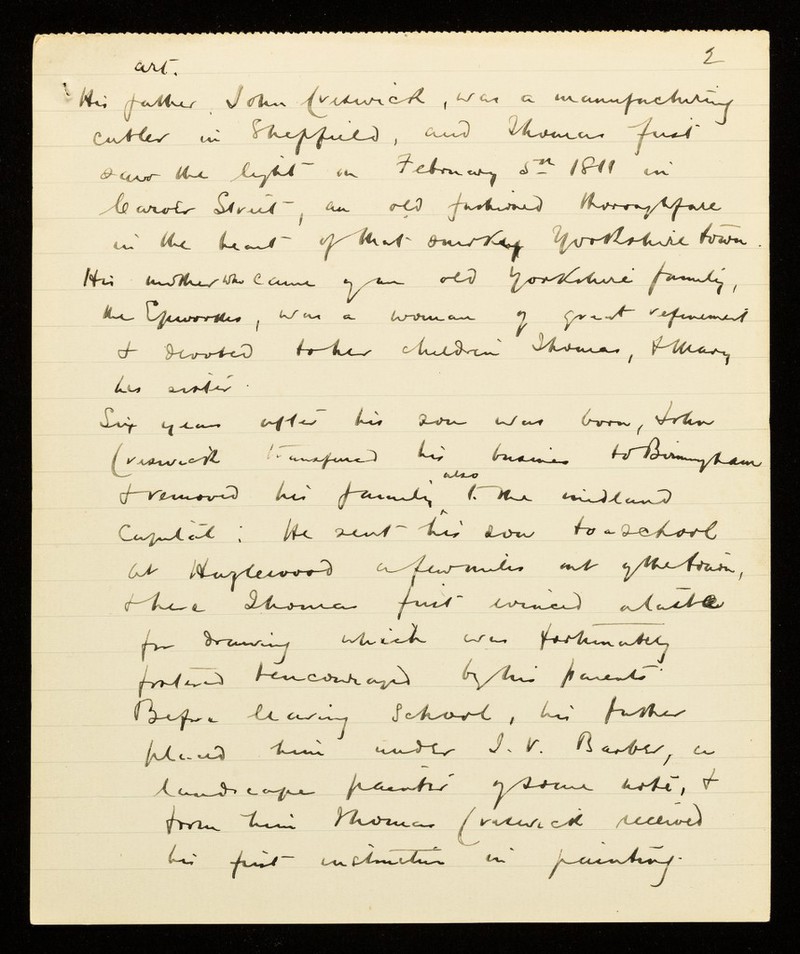 2
art.
His father, John Creswick, was a manufacturing
cutler in Sheffield, and Thomas first
saw the light on February 5th 1811 in
Carver Street, an old fashioned thoroughfare
in the heart of that smoky Yorkshire town.
His mother who came of an old Yorkshire family,
the Epworths, was a woman of great refinement
& devoted to her children Thomas, & Mary
his sister.
Six years after his son was born, John
Creswick transferred his business to Birmingham
& removed his family also to the midland
Capital: He sent his son to a school
at Hazlewood a few miles out of the town,
& here Thomas first evinced a taste
for drawing which was fortunately
fostered & encouraged by his parents
Before leaving School, his father
placed him under J. V. Barber, a
landscape painter of some note, &
from him Thomas Creswick received
his first instruction in painting.